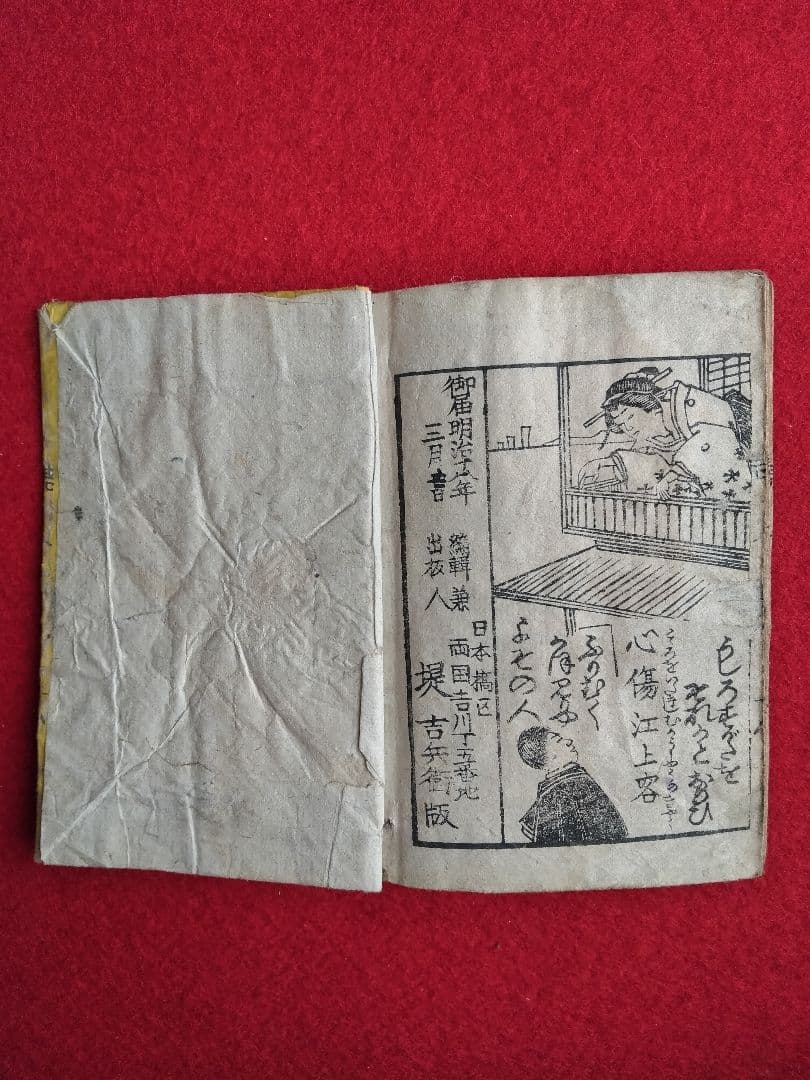 うしろすがたを
それかとおもひ
心傷江上客
ふりむく
よその人
御届明治十八年
三月
編輯兼
出板人
日本橋区
両国吉川丁五番地
堤吉兵衛版